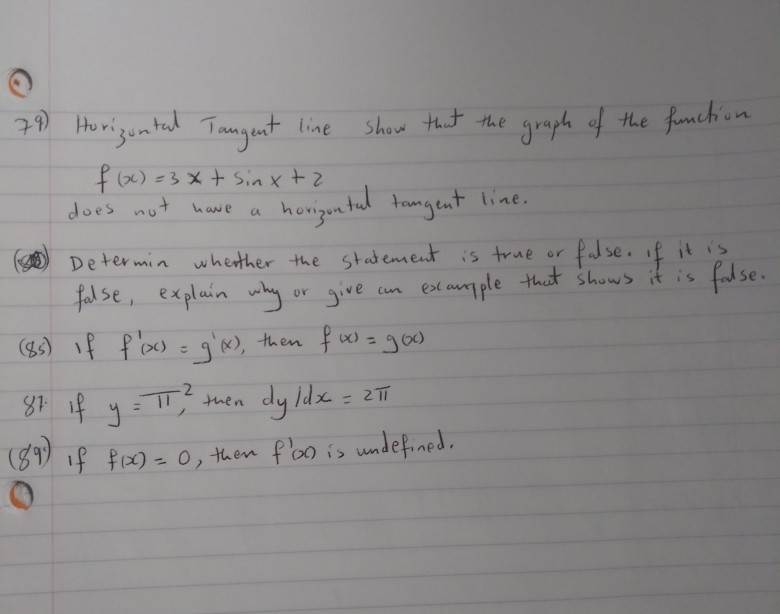 79) Horizontal Tangent line show that the graph of the function
f(x) = 3x + sin x + 2
does not have a horizontal tangent line.
Determin whether the statement is true or false. if it is
false, explain why or give an example that shows it is false.
(85) if f'(x) = g'(x), then f(x) = g(x)
87. if y = π², then dy/dx = 2π
(89) if f(x) = 0, then f'(x) is undefined.